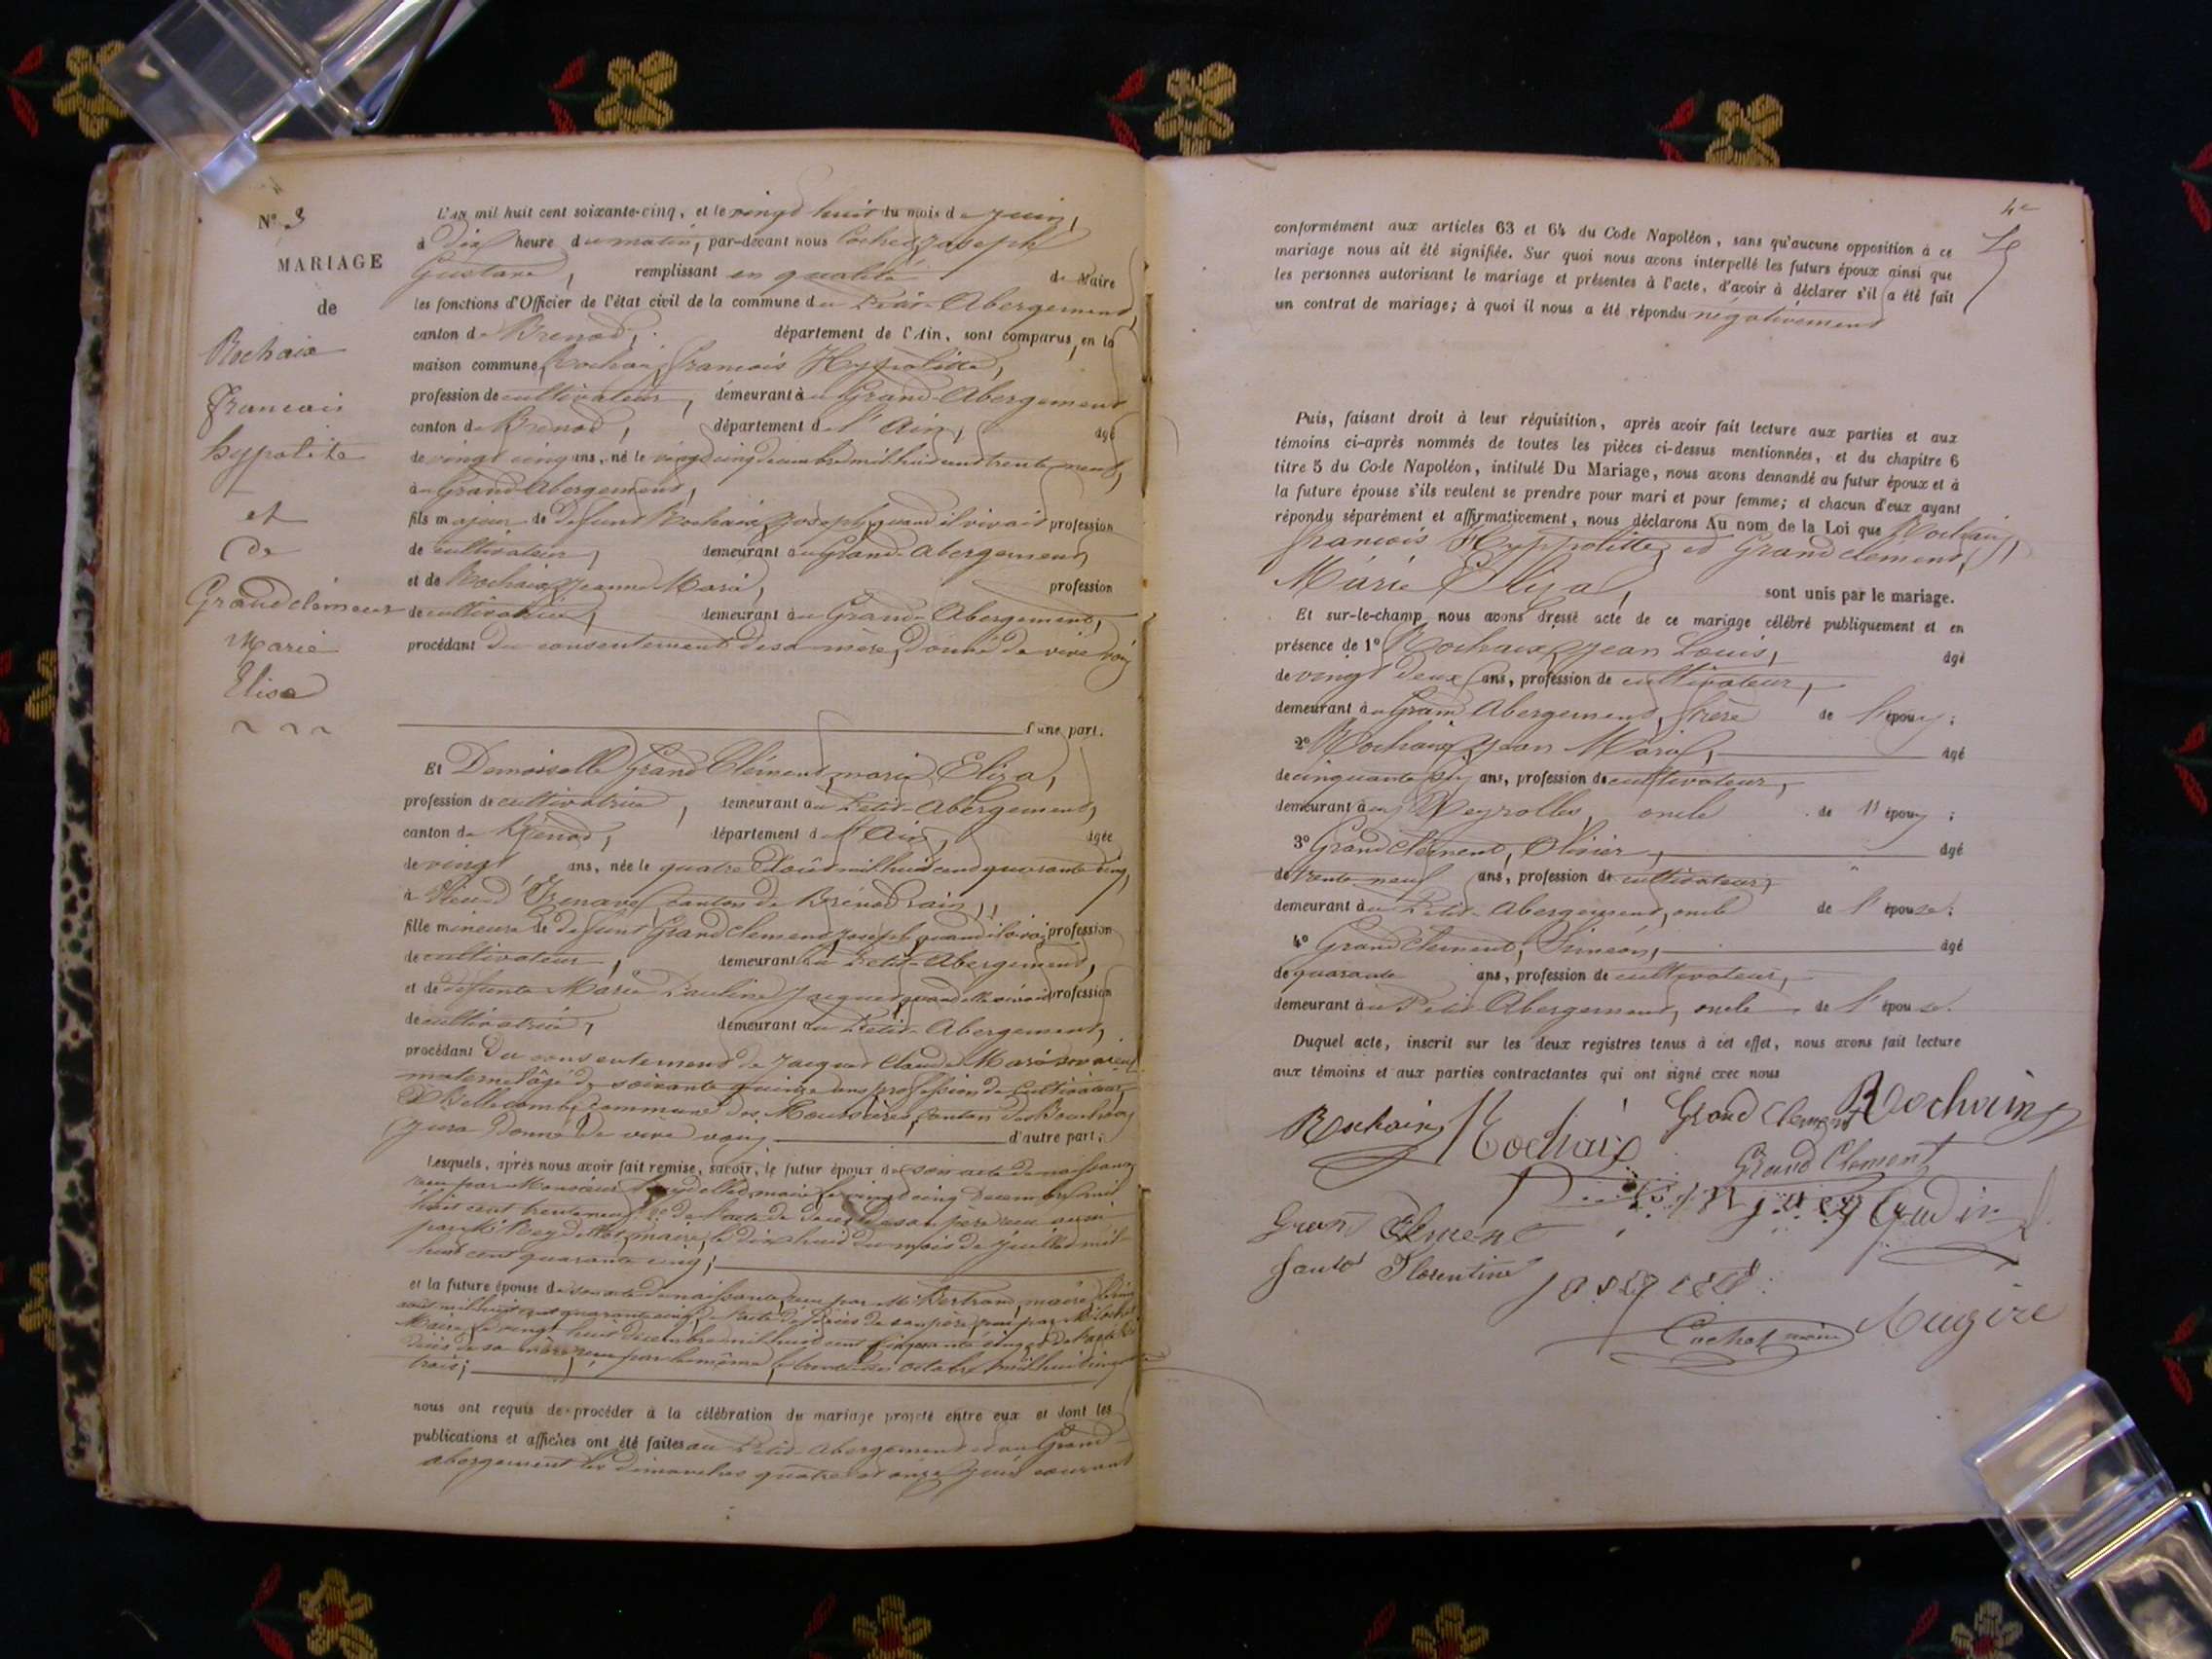 N° 3
MARIAGE
de
Rochaix
Francois
hypolite
et
de
Grandclément
Marie
Elisa
L'AN mil huit cent soixante-cinq, et le vingt huit du mois de Juin,
à dix heure du matin, par-devant nous Cochet Joseph
Gustave, remplissant en qualité de Maire
les fonctions d'Officier de l'état civil de la commune du Petit-Abergement,
canton de Brenod, département de l'Ain, sont comparus, en la
maison commune, Rochaix francois Hyppolitte,
profession de cultivateur, demeurant au Grand-Abergement
canton de Brenod, département de l'Ain, âgé
de vingt cinq ans, né le vingt cinq décembre mil huit cent trente neuf,
au Grand Abergement,
fils majeur de defunt Rochaix Joseph, quand il vivait profession
de cultivateur, demeurant au Grand-Abergement,
et de Rochaix Jeanne Marie, profession
de cultivatrice, demeurant au Grand-Abergement,
procédant du consentement de sa mère, donné de vive voix
d'une part.
Et Demoiselle Grand Clément marie Eliza,
profession de cultivatrice, demeurant au Petit-Abergement,
canton de Brénod, département de l'Ain, âgée
de vingt ans, née le quatre Août mil huit cent quarante cinq,
à Vieu d'Izenave canton de Brénod, ain,
fille mineure de defunt Grand clement Joseph, quand il vivait profession
de cultivateur, demeurant au Petit-Abergement,
et de defunte Marie Pauline Jacquet quand elle vivait profession
de cultivatrice, demeurant au Petit-Abergement,
procédant du consentement de Jacquet Claude Marie son aïeul
maternel âgé de soixante quinze ans profession de Cultivateur,
à Bellecombe commune des Moussières, canton des Bouchoux
Jura donné de vive voix d'autre part.
Lesquels, après nous avoir fait remise, savoir, le futur époux de son acte de naissance
reçu par Monsieur Reydellet, maire, le vingt cinq Decembre mil
huit cent trente neuf, de l'acte de décès de son père reçu aussi
par Mr Reydellet, maire, le dix huit du mois de Juillet mil
huit cent quarante cinq;
et la future épouse de son acte de naissance, reçu par Mr Bertrand, maire, le cinq
août mil huit cent quarante cinq, de l'acte de décès de son père, reçu par Mr Cochet
Maire, le vingt huit décembre mil huit cent cinquante cinq, et de l'acte de
décès de sa mère, reçu par le même, le octobre mil huit
trois;
nous ont requis de procéder à la célébration du mariage projeté entre eux et dont les
publications et affiches ont été faites au Petit-Abergement et au Grand-
abergement les dimanches quatre et onze Juin courant
4e
conformément aux articles 63 et 64 du Code Napoléon, sans qu'aucune opposition à ce
mariage nous ait été signifiée. Sur quoi nous avons interpellé les futurs époux ainsi que
les personnes autorisant le mariage et présentes à l'acte, d'avoir à déclarer s'il a été fait
un contrat de mariage; à quoi il nous a été répondu négativement
Puis, faisant droit à leur réquisition, après avoir fait lecture aux parties et aux
témoins ci-après nommés de toutes les pièces ci-dessus mentionnées, et du chapitre 6
titre 5 du Code Napoléon, intitulé Du Mariage, nous avons demandé au futur époux et à
la future épouse s'ils veulent se prendre pour mari et pour femme; et chacun d'eux ayant
répondu séparément et affirmativement, nous déclarons Au nom de la Loi que Rochaix
francois Hyppolitte et Grand clement,
Marie Eliza, sont unis par le mariage.
Et sur-le-champ nous avons dressé acte de ce mariage célébré publiquement et en
présence de 1° Rochaix Jean Louis, âgé
de vingt deux ans, profession de cultivateur,
demeurant au Grand Abergement, frère de l'époux;
2° Rochaix Jean Marie, âgé
de cinquante six ans, profession de cultivateur,
demeurant à Meyrolles, oncle de l'époux;
3° Grand clément, Olivier, âgé
de trente neuf ans, profession de cultivateur,
demeurant au Petit-Abergement, oncle de l'épouse;
4° Grand clement, Siméon, âgé
de quarante ans, profession de cultivateur,
demeurant au Petit Abergement, oncle de l'épouse.
Duquel acte, inscrit sur les deux registres tenus à cet effet, nous avons fait lecture
aux témoins et aux parties contractantes qui ont signé avec nous
Rochaix Rochaix Grand Clement Rochaix
Grand Clement
Grand Clément
Florentine
Cochet maire Mugire